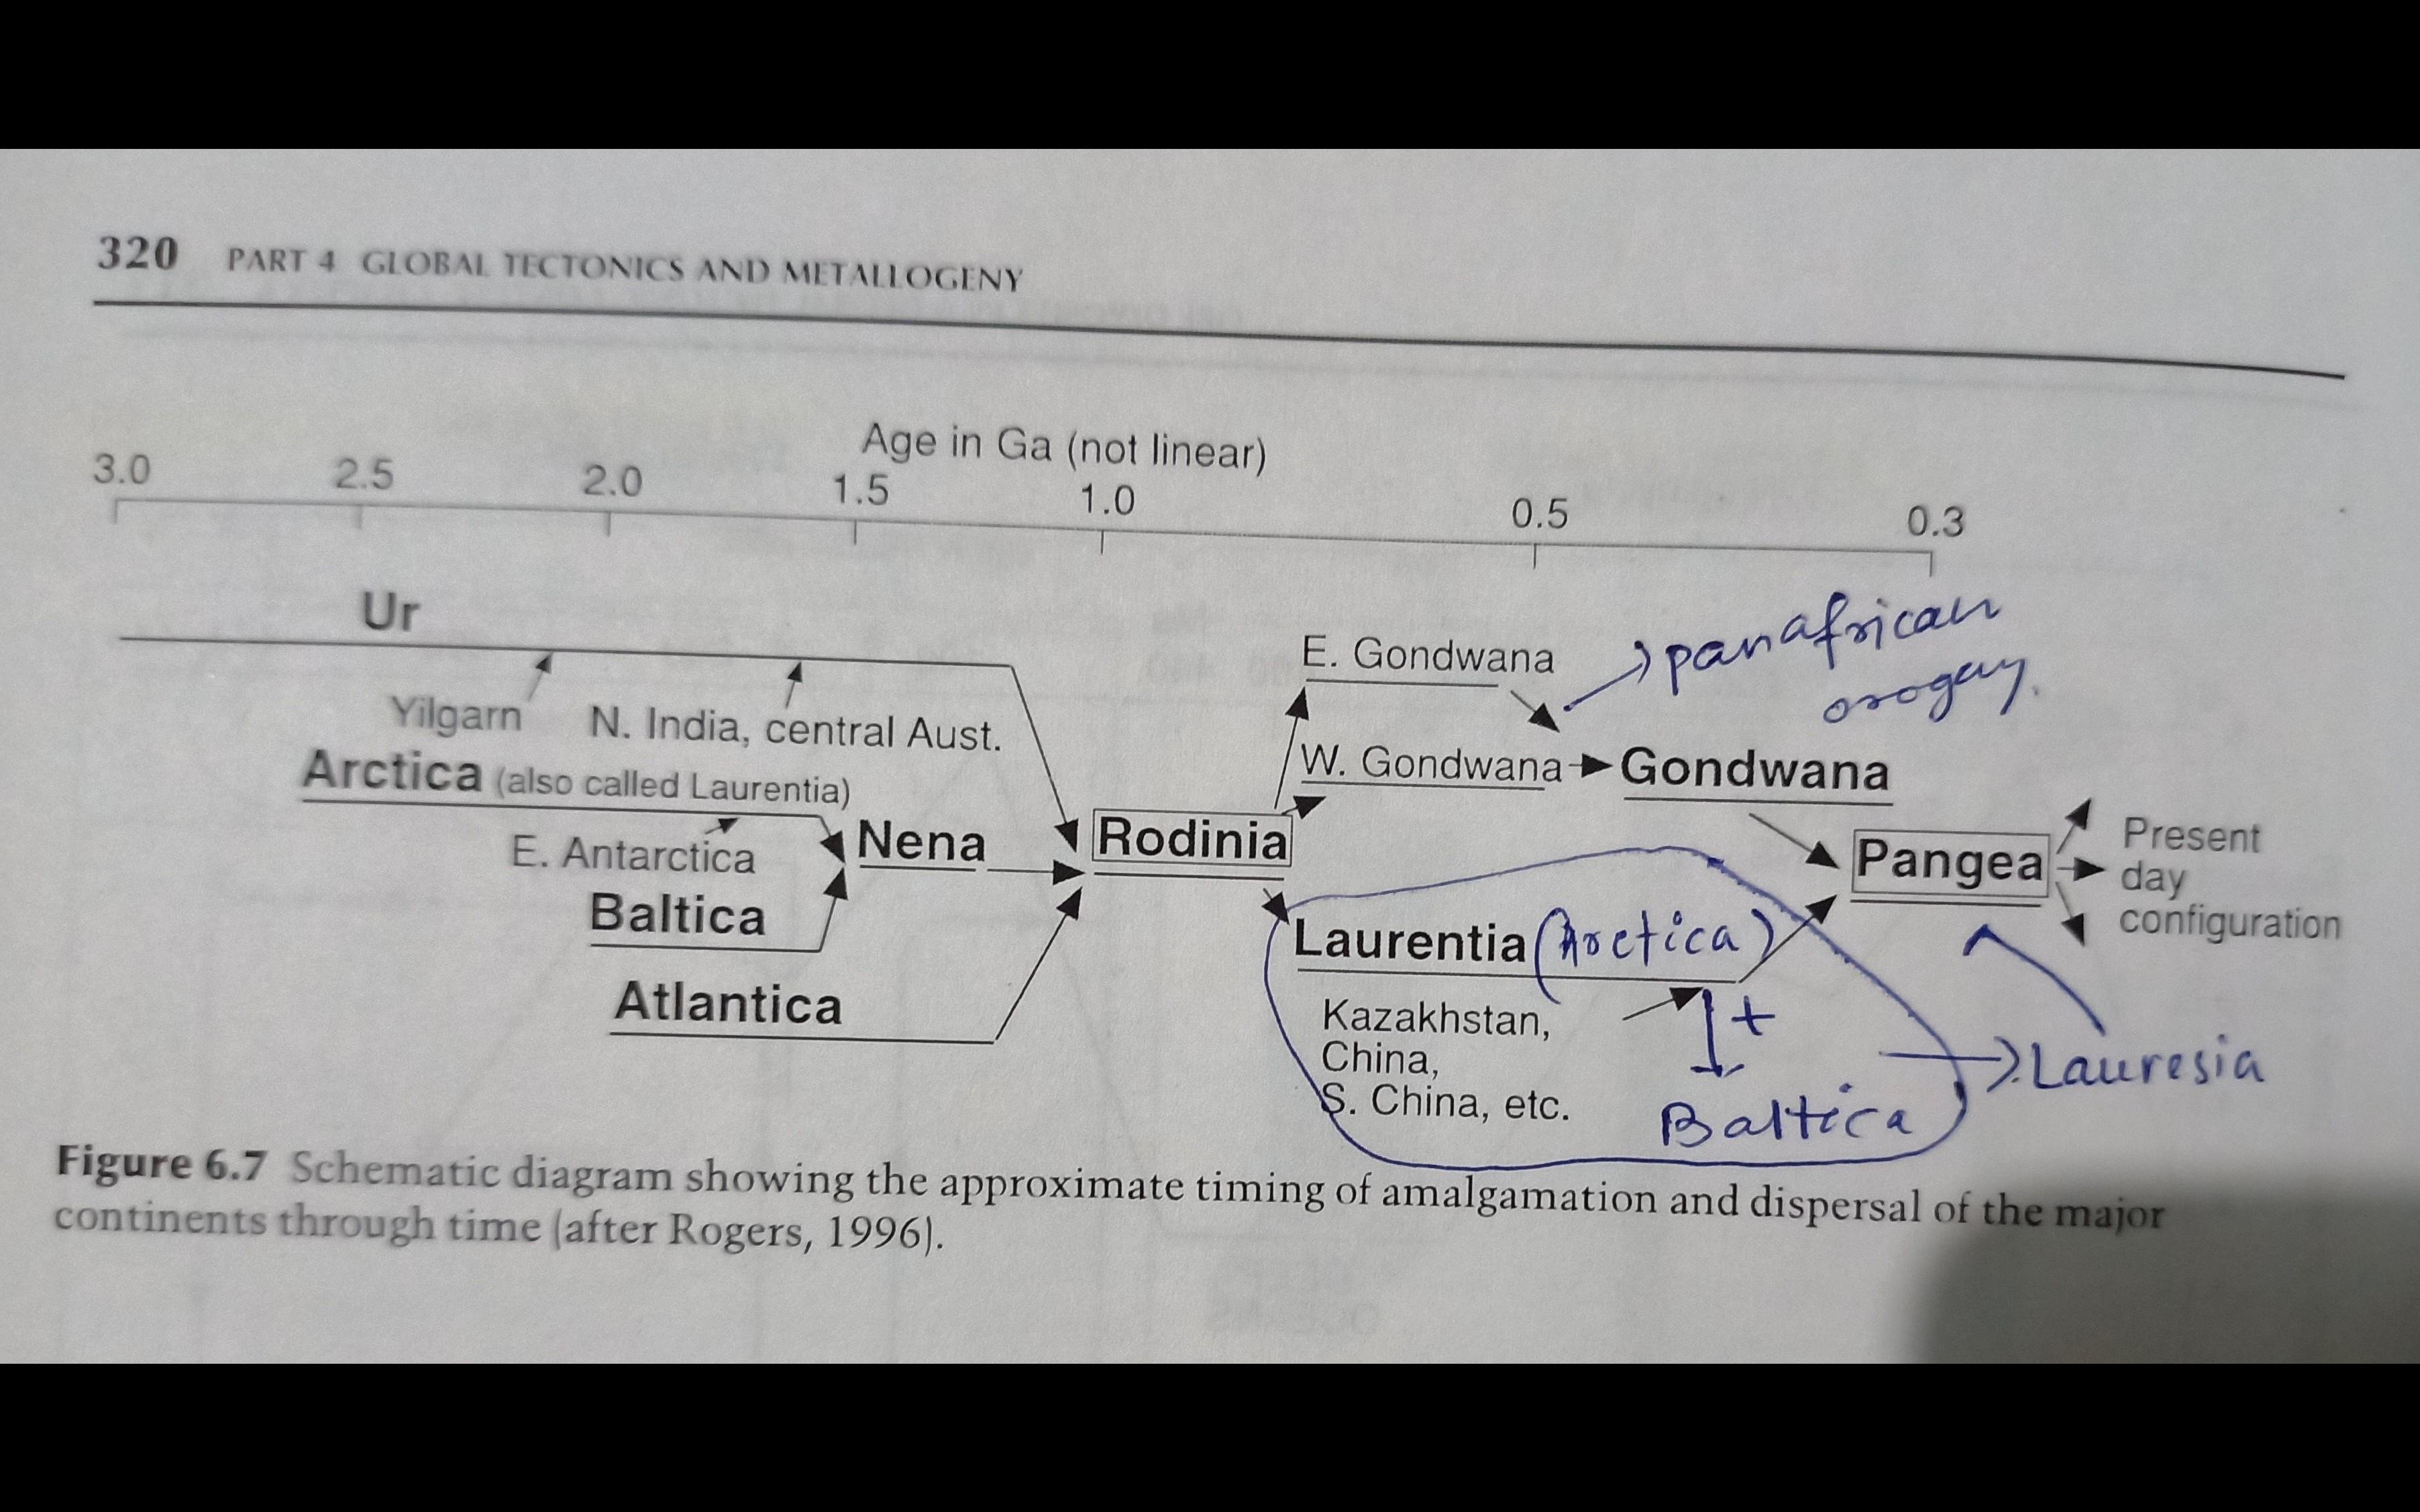 320 PART 4 GLOBAL TECTONICS AND METALLOGENY
Age in Ga (not linear)
3.0 2.5 2.0 1.5 1.0 0.5 0.3
Ur
Yilgarn N. India, central Aust.
Arctica (also called Laurentia)
E. Antarctica
Baltica
Atlantica
Nena
Rodinia
E. Gondwana
panafrican
orogeny.
W. Gondwana
Gondwana
Laurentia (Arctica)
Kazakhstan,
China,
S. China, etc.
+
Baltica
Lauresia
Pangea
Present
day
configuration
Figure 6.7 Schematic diagram showing the approximate timing of amalgamation and dispersal of the major
continents through time (after Rogers, 1996).